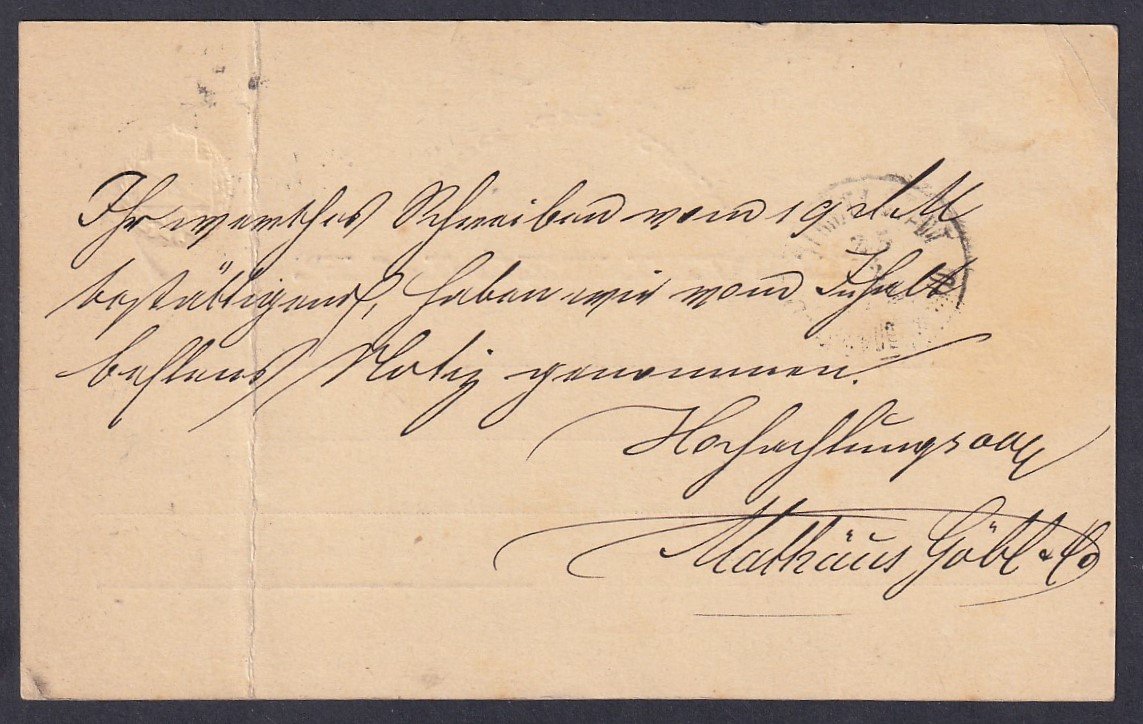 Ihr werthes Schreiben vom 19 d. M
bestättigend, haben wir vom Inhalt
bestens Notiz genommen.
Hochachtungsvoll
Mathäus Göbl & Co
25